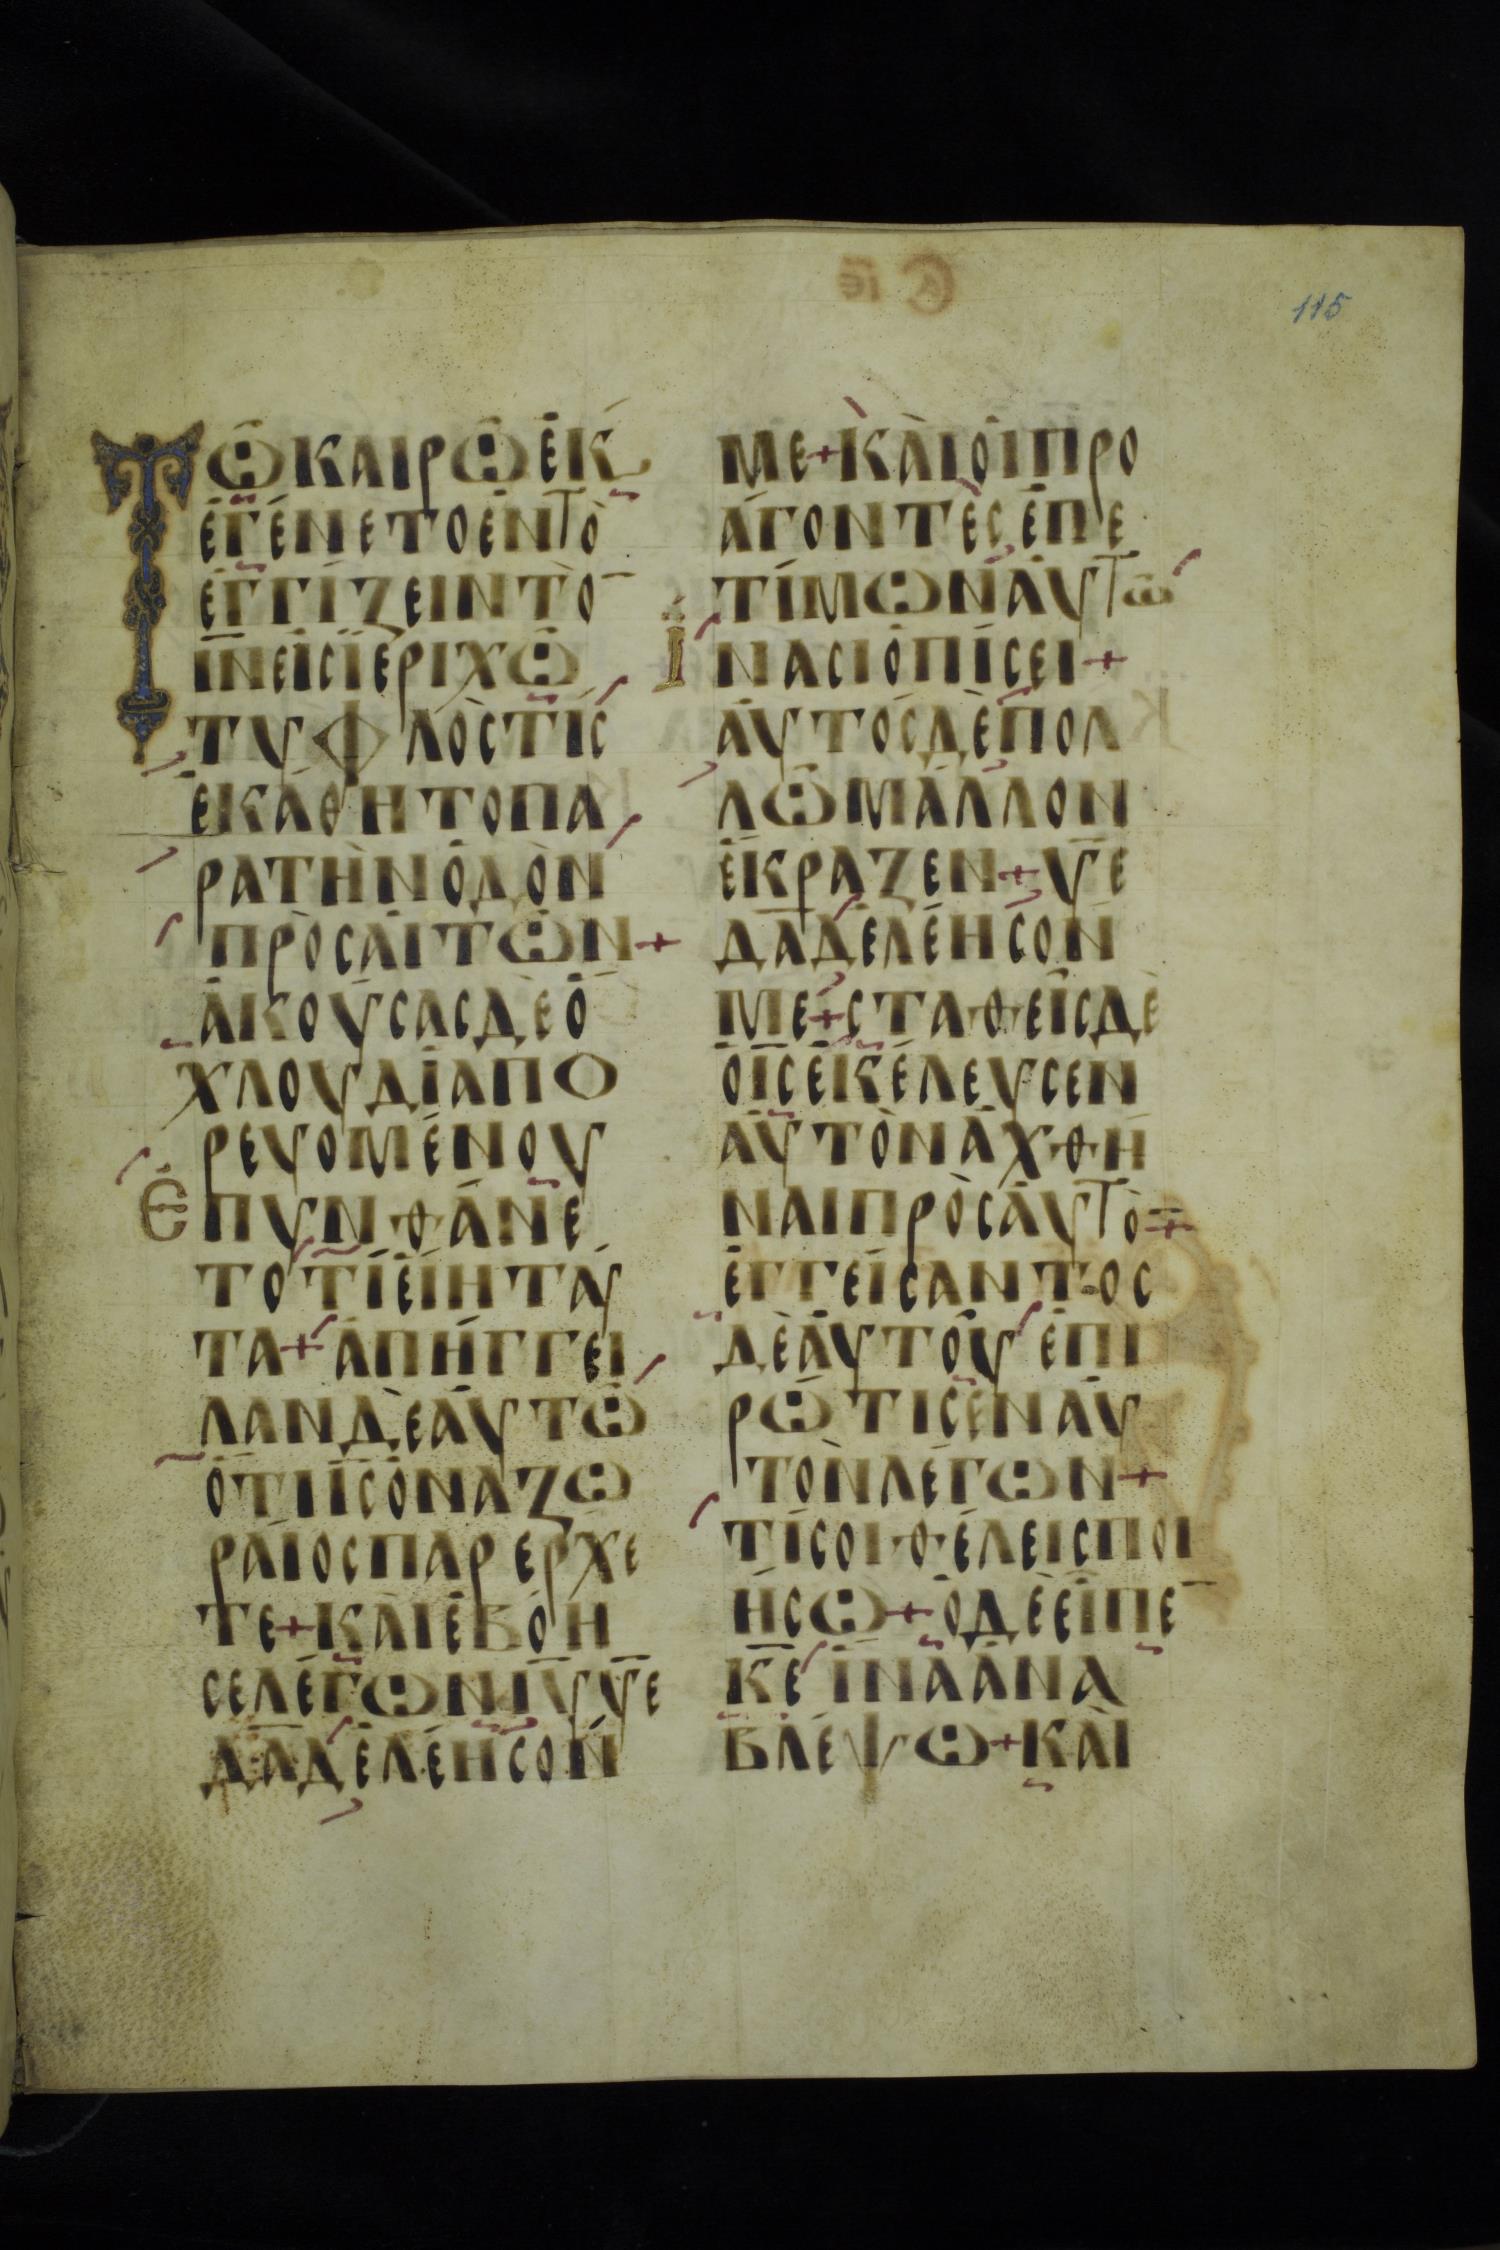 115
Τῶ ΚΑΙΡῶ ἘΚ
ἘΓΈΝΕΤΟ ἘΝ ΤῸ
ἘΓΓΊΖΕΙΝ ΤῸ̅
ΙΝ̅ ΕἸΣ ἸΕΡΙΧῶ
ΤΥΦΛῸΣ ΤῚΣ
ἘΚΆΘΗΤΟ ΠΑ
ΡΑ ΤῊΝ ὉΔῸΝ
ΠΡΟΣΑΙΤῶΝ+
ἈΚΟΎΣΑΣ ΔῈ Ὀ
ΧΛΟΥ ΔΙΑΠΟ
ΡΕΥΟΜΈΝΟΥ
ἘΠΥΝΘΆΝΕ
ΤΟ ΤΊ ΕἸΗ ΤΑΥ
ΤΑ+ ἈΠΉΓΓΕΙ
ΛΑΝ ΔῈ ΑΥΤῶ
ὍΤΙ ΙΣ̅ Ὁ ΝΑΖΩ
ΡΑΙΟΣ ΠΑΡΕΡΧΕ
ΤΕ+ ΚΑῚ ἘΒΌΗ
ΣΕ ΛΈΓΩΝ ΙΥ̅ ΥΕ̅
ΔΑΔ̅ ἘΛΈΗΣΟΝ
ΜΕ+ ΚΑῚ ὉΙ ΠΡΟ
ἈΓΟΝΤΕΣ ἘΠΕ
ΤΊΜΩΝ ΑΥΤῶ
ἽΝΑ ΣΙΟΠΊΣΕΙ+
ΑΥΤΌΣ ΔῈ ΠΟΛ
Λῶ ΜΆΛΛΟΝ
ἘΚΡΑΖΕΝ+ ΥΕ̅
ΔΑΔ̅ ἘΛΈΗΣΟΝ
ΜΕ+ ΣΤΑΘΕῚΣ ΔῈ
Ὁ ΙΣ̅ ἘΚΈΛΕΥΣΕΝ
ΑΥΤῸΝ ἈΧΘΗ
ΝΑΙ ΠΡῸΣ ΑΥΤῸ̅+
ἘΓΓΕΊΣΑΝΤΟΣ
ΔῈ ΑΥΤΟΥ ἘΠΙ
ΡΩΤΙΣΕΝ ΑΥ
ΤῸΝ ΛΈΓΩΝ+
ΤΊ ΣΟΙ ΘΈΛΕΙΣ ΠΟΙ
ΉΣΩ+ Ὁ ΔῈ ΕΙΠΕ̅
ΚΕ̅ ἽΝΑ ἈΝΑ
ΒΛΈΨΩ+ ΚΑῚ